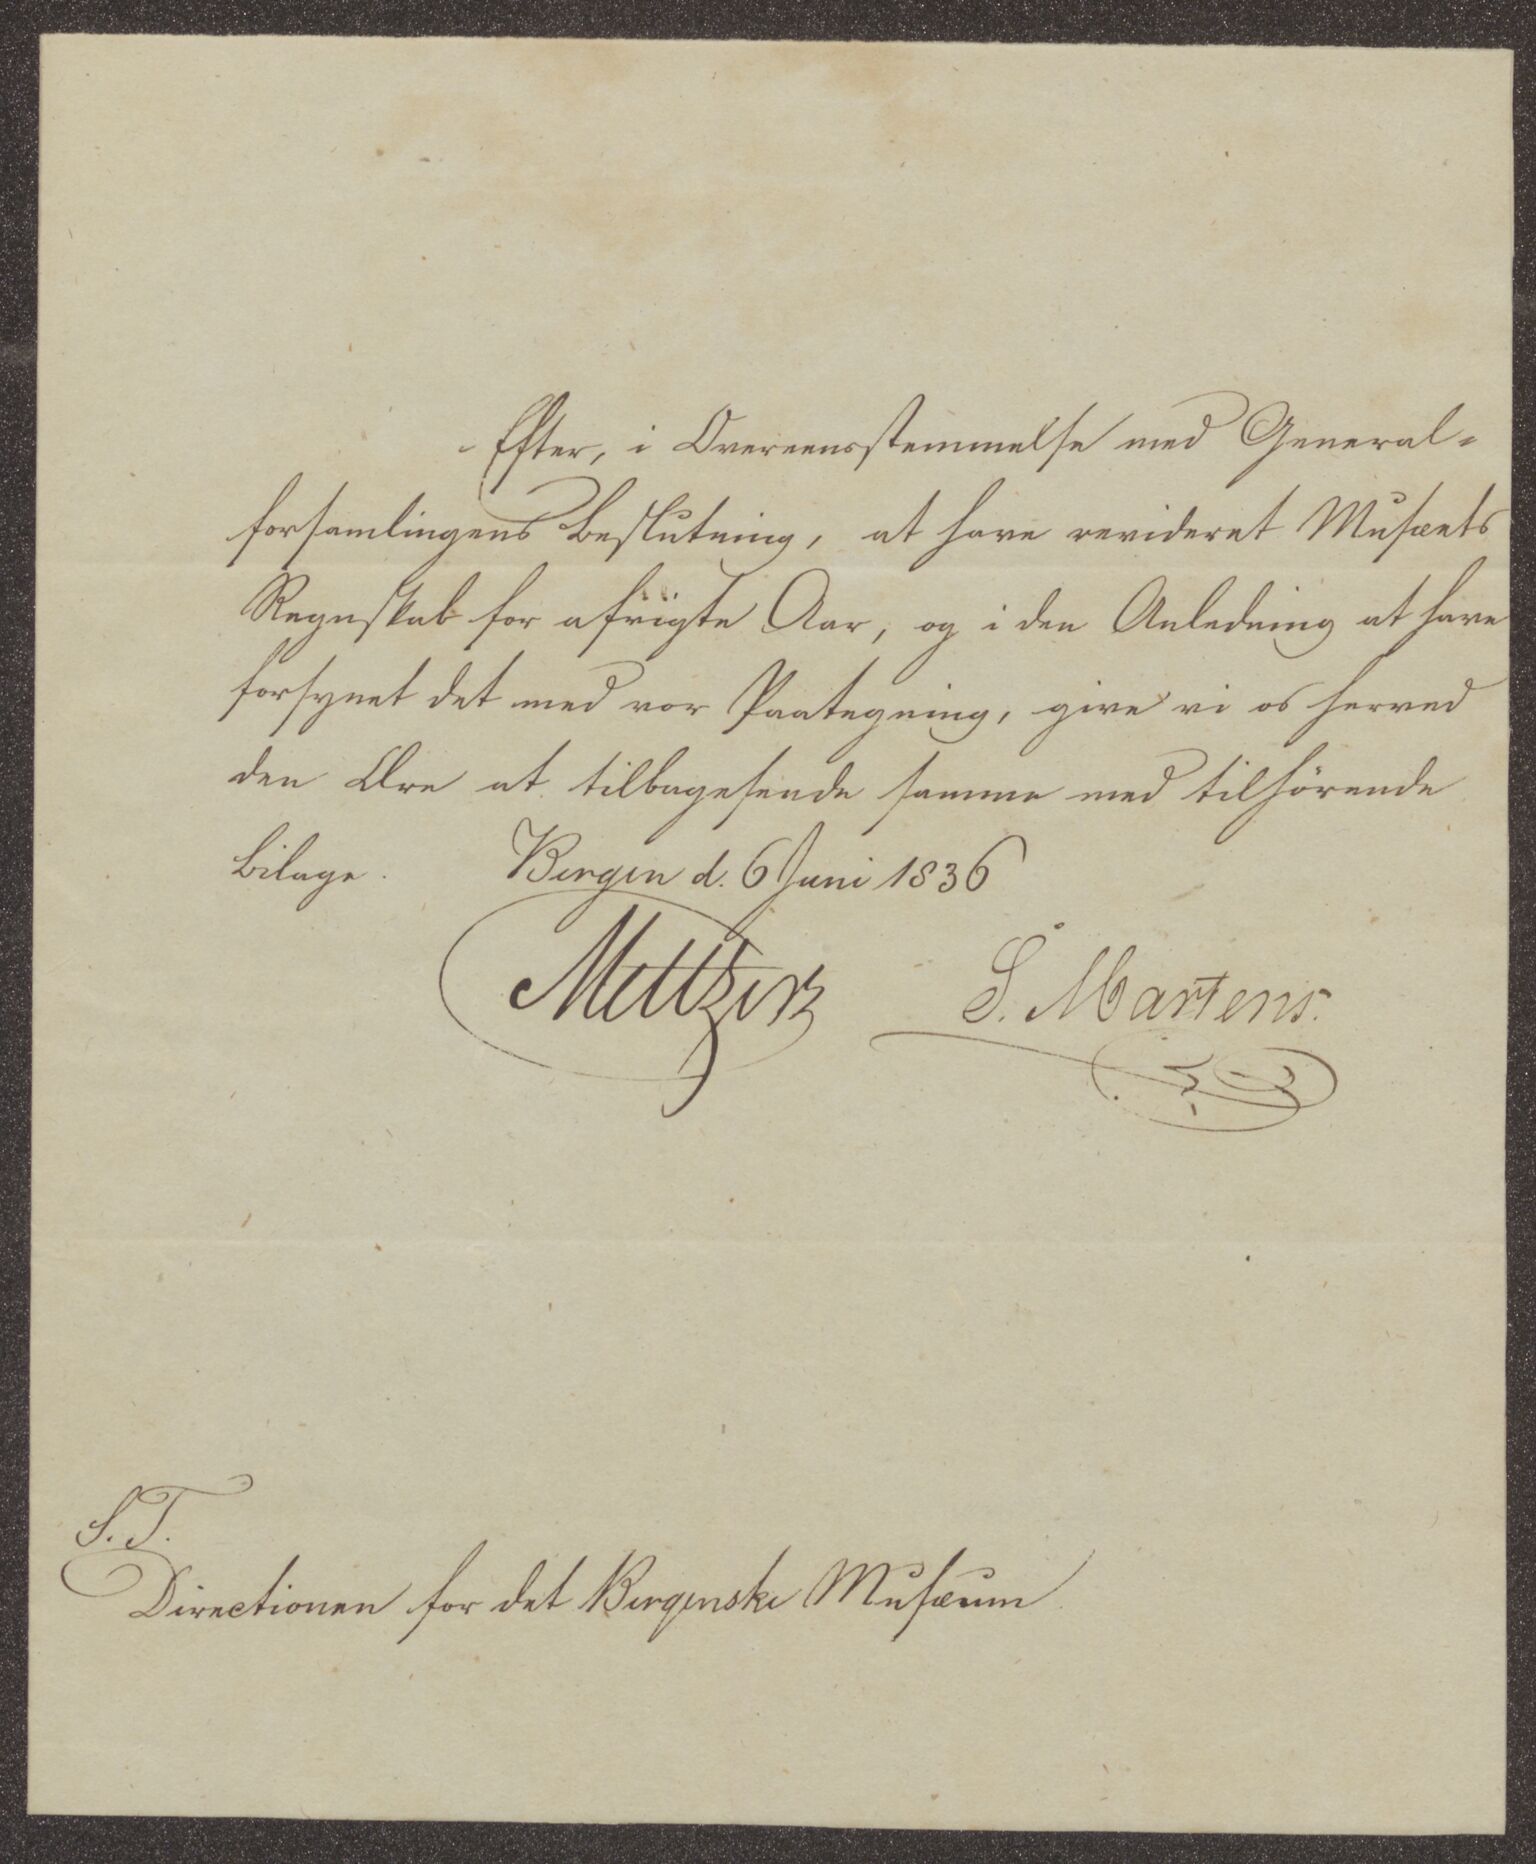 Efter, i Overeensstemmelse med General-
forsamlingens Beslutning, at have revideret Musæets
Regnskab for afvigte Aar, og i den Anledning at have
forsynet det med vor Paategning, give vi os herved
den Ære at tilbagesende samme med tilhörende
Bilage. Bergen d. 6 Juni 1836
Meltzer S. Martens.
S. T.
Directionen for det Bergenske Musæum